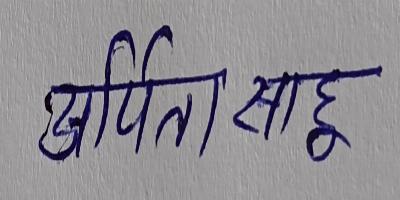 अर्पिता साहू